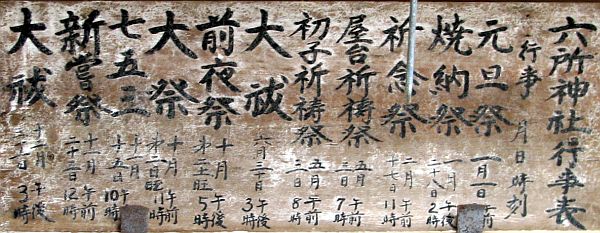 六所神社行事表
行事 月日時刻
元旦祭 一月一日 午前
焼納祭 一月二十八日 午後2時
祈念祭 二月十七日 午前11時
屋台祈祷祭 五月三日 午前7時
初子祈祷祭 五月三日 午前8時
大祓 六月三十日 午後3時
前夜祭 十月オ二土旺 午後5時
大祭 十月オ二日旺 午前11時
七五三 十一月十五日 午前10時
新嘗祭 十一月二十三日 午前12時
大祓 十二月三十一日 午後3時